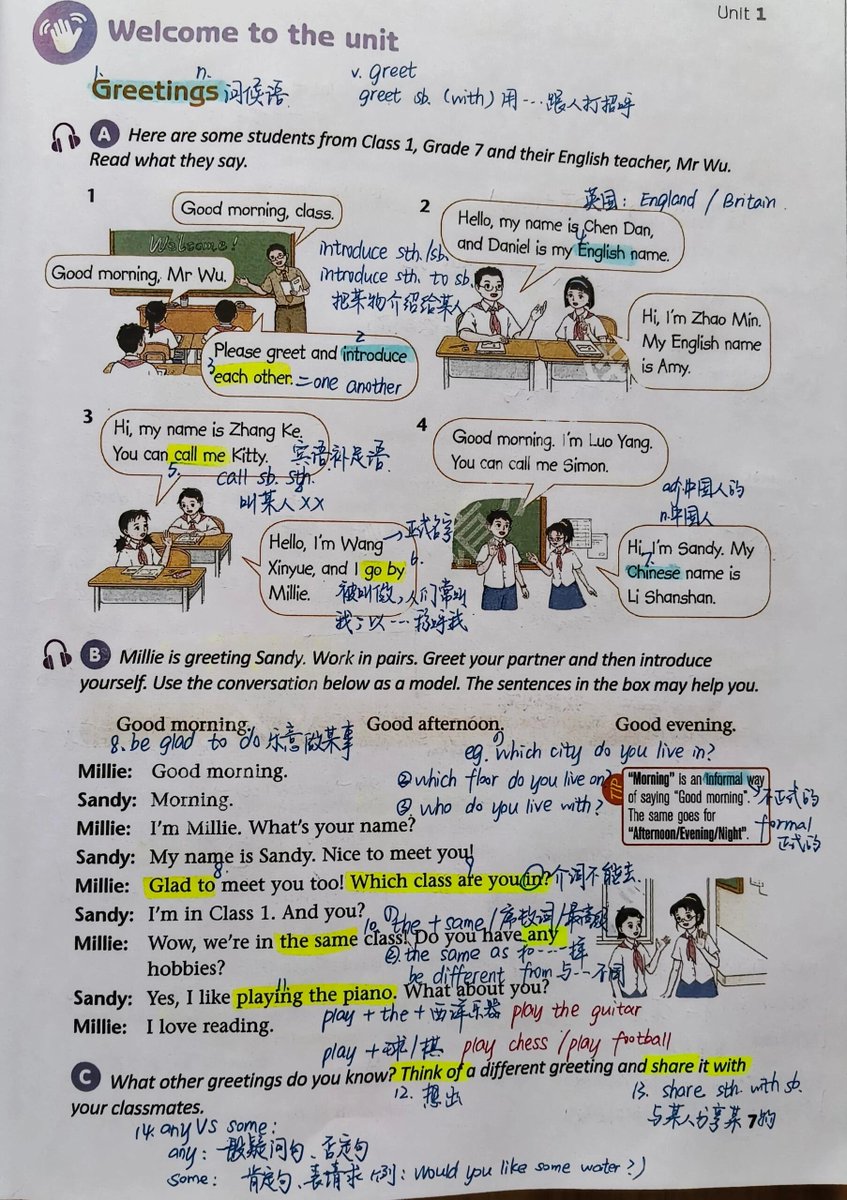 Unit 1
Welcome to the unit
1. n. v. greet
Greetings 问候语 greet sb. (with) 用…跟人打招呼
A Here are some students from Class 1, Grade 7 and their English teacher, Mr Wu.
Read what they say.
1
Good morning, class.
Welcome!
Good morning, Mr Wu.
2
Please greet and introduce
3 each other. = one another
introduce sth./sb.
introduce sth. to sb.
把某物介绍给某人
英国: England / Britain
2
Hello, my name is Chen Dan,
4
and Daniel is my English name.
Hi, I'm Zhao Min.
My English name
is Amy.
3
Hi, my name is Zhang Ke.
You can call me Kitty. 宾语补足语
5. call sb. sth.
叫某人XX
Hello, I'm Wang → 正式名字
Xinyue, and I go by 6.
Millie. 被叫做,人们常叫
我;以…称呼我
4
Good morning. I'm Luo Yang.
You can call me Simon.
adj.中国人的
n.中国人
Hi, I'm Sandy. My
7.
Chinese name is
Li Shanshan.
B Millie is greeting Sandy. Work in pairs. Greet your partner and then introduce
yourself. Use the conversation below as a model. The sentences in the box may help you.
Good morning. Good afternoon. Good evening.
8. be glad to do 乐意做某事
eg. ① which city do you live in?
② which floor do you live on?
③ who do you live with?
Millie: Good morning.
Sandy: Morning.
Millie: I'm Millie. What's your name?
Sandy: My name is Sandy. Nice to meet you!
8. 9
Millie: Glad to meet you too! Which class are you in? 介词不能丢
TIP
"Morning" is an informal way
of saying "Good morning". 不正式的
The same goes for formal
"Afternoon/Evening/Night". 正式的
Sandy: I'm in Class 1. And you?
10. ① the + same / 序数词/最高级
Millie: Wow, we're in the same class! Do you have any
hobbies?
② the same as 和…一样
be different from 与…不同
11
Sandy: Yes, I like playing the piano. What about you?
Millie: I love reading.
play + the + 西洋乐器 play the guitar
play + 球/棋 play chess / play football
C What other greetings do you know? Think of a different greeting and share it with
your classmates.
12. 想出
13. share sth. with sb.
与某人分享某物
7
14. any VS some:
any: 一般疑问句、否定句
some: 肯定句、表请求 (例: Would you like some water?)